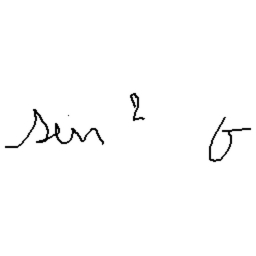 sin² σ